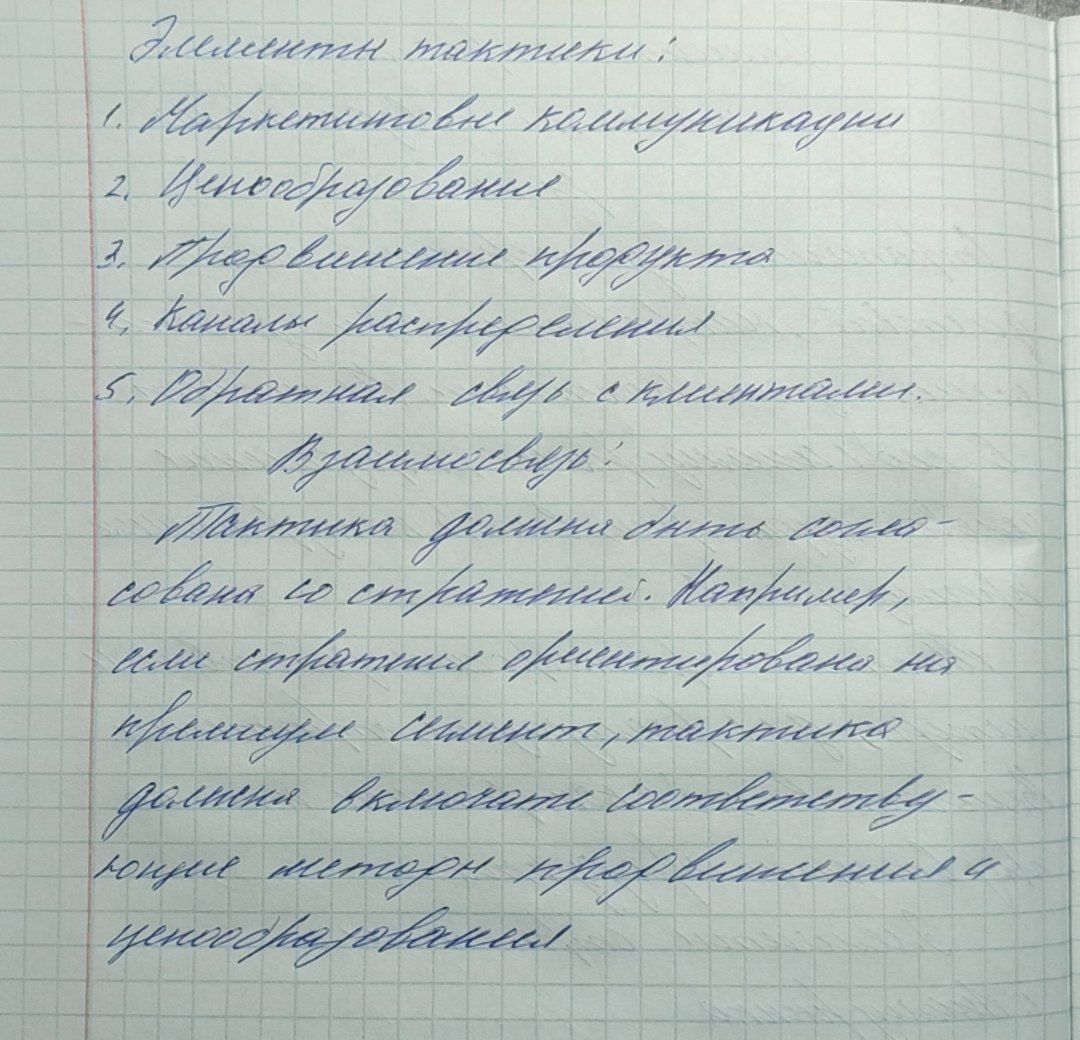 Элементы тактики:
1. Маркетинговые коммуникации
2. Ценообразование
3. Продвижение продукта
4. Каналы распределения
5. Обратная связь с клиентами.
Взаимосвязь:
Тактика должна быть согла-
сована со стратегией. Например,
если стратегия ориентирована на
премиум сегмент, тактика
должна включать соответству-
ющие методы продвижения и
ценообразования